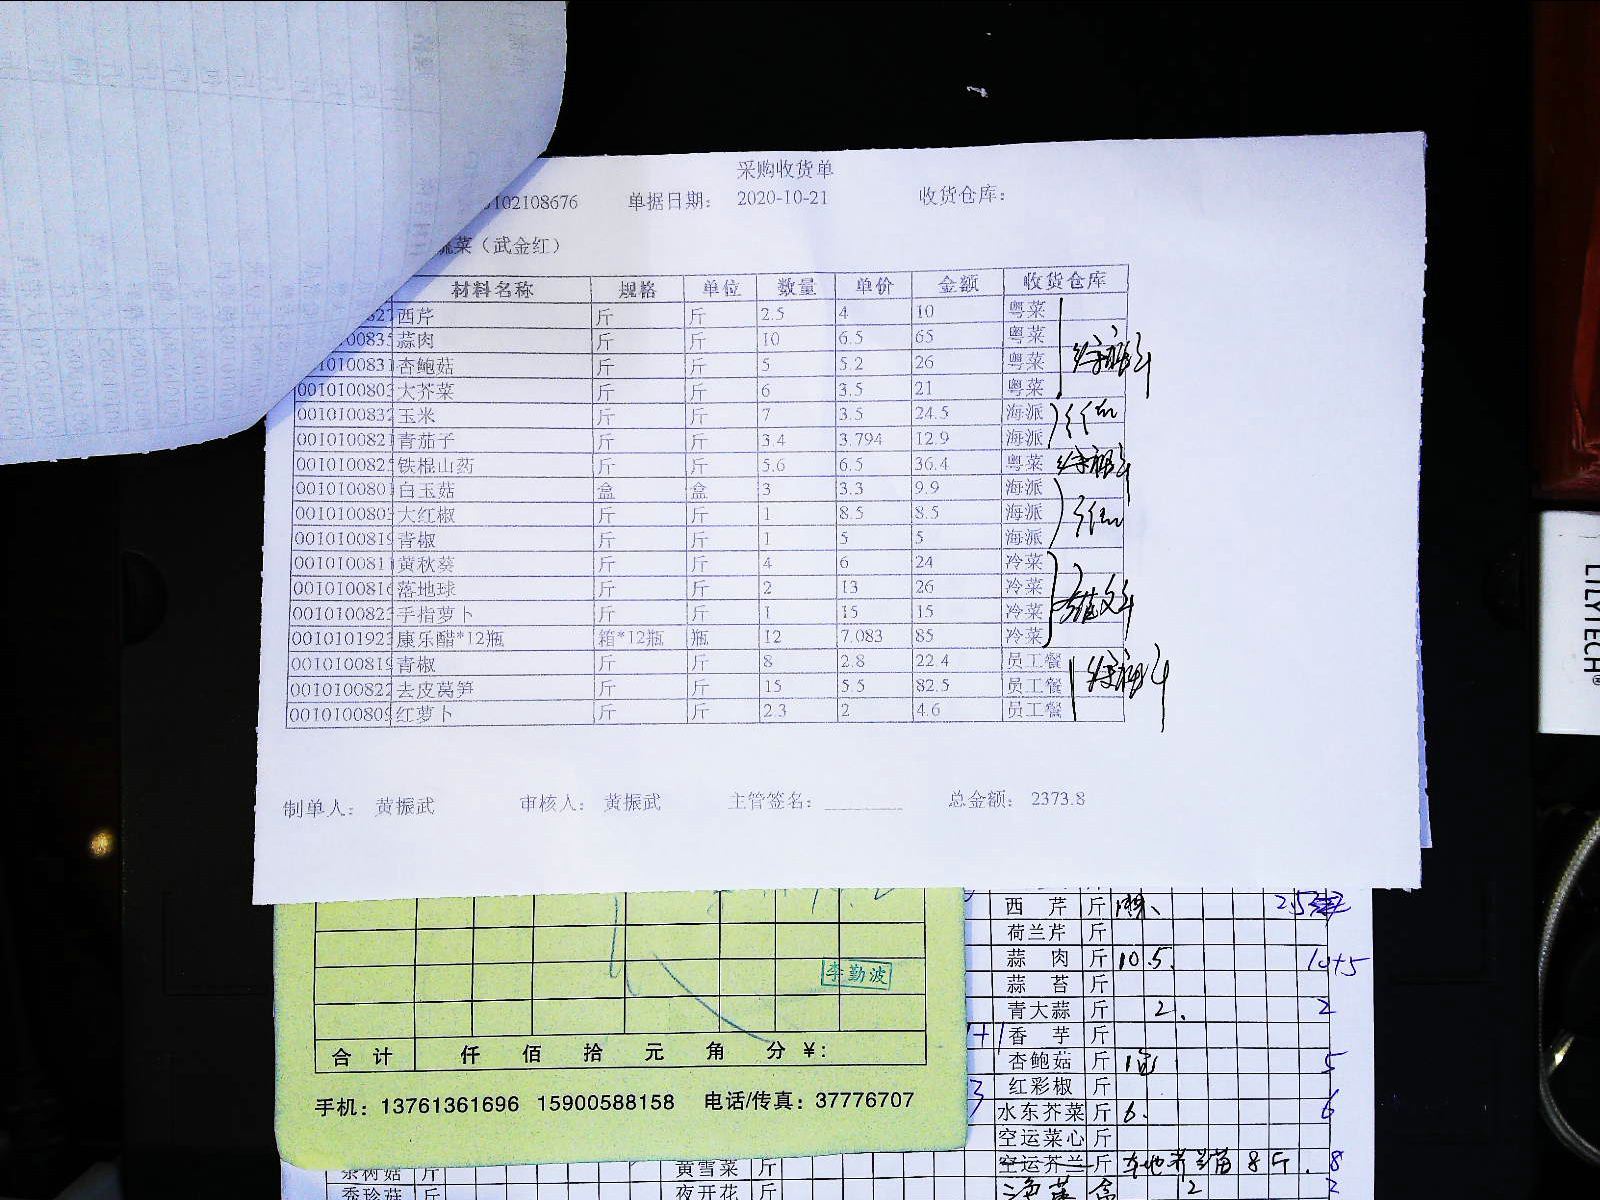 采购收货单
0102108676 单据日期: 2020-10-21 收货仓库:
蔬菜（武金红）
材料名称 规格 单位 数量 单价 金额 收货仓库
西芹 斤 斤 2.5 4 10 粤菜
00835 蒜肉 斤 斤 10 6.5 65 粤菜
10100831 杏鲍菇 斤 斤 5 5.2 26 粤菜
0010100803 大芥菜 斤 斤 6 3.5 21 粤菜
0010100832 玉米 斤 斤 7 3.5 24.5 海派
0010100821 青茄子 斤 斤 3.4 3.794 12.9 海派
0010100825 铁棍山药 斤 斤 5.6 6.5 36.4 粤菜
0010100801 白玉菇 盒 盒 3 3.3 9.9 海派
0010100803 大红椒 斤 斤 1 8.5 8.5 海派
0010100819 青椒 斤 斤 1 5 5 海派
0010100811 黄秋葵 斤 斤 4 6 24 冷菜
0010100816 落地球 斤 斤 2 13 26 冷菜
0010100823 手指萝卜 斤 斤 1 15 15 冷菜
0010101923 康乐醋*12瓶 箱*12瓶 瓶 12 7.083 85 冷菜
0010100819 青椒 斤 斤 8 2.8 22.4 员工餐
0010100822 去皮莴笋 斤 斤 15 5.5 82.5 员工餐
0010100809 红萝卜 斤 斤 2.3 2 4.6 员工餐
制单人: 黄振武 审核人: 黄振武 主管签名: 总金额: 2373.8
李勤波
合计 仟 佰 拾 元 角 分 ¥:
手机: 13761361696 15900588158 电话/传真: 37776707
西芹 斤 2.5
荷兰芹 斤
蒜肉 斤 10.5 10+5
蒜苔 斤
青大蒜 斤 2. 2
香芋 斤
杏鲍菇 斤 5
红彩椒 斤
水东芥菜 斤 6. 6
空运菜心 斤
空运芥兰 斤 8斤. 8
茶树菇 斤 黄雪菜 斤 盒 2 2
秀珍菇 斤 夜开花 斤
LILYTECH®